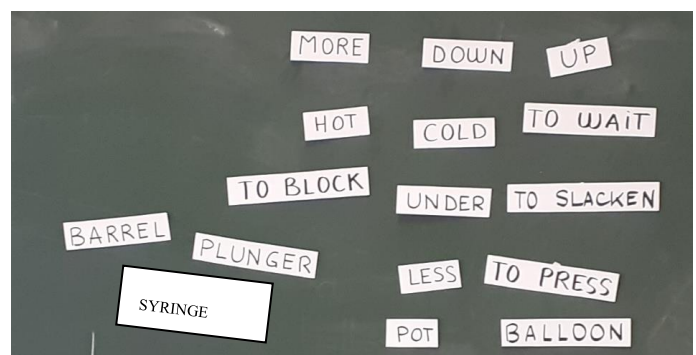 MORE
DOWN
UP
HOT
COLD
TO WAIT
TO BLOCK
UNDER
TO SLACKEN
BARREL
PLUNGER
LESS
TO PRESS
SYRINGE
POT
BALLOON